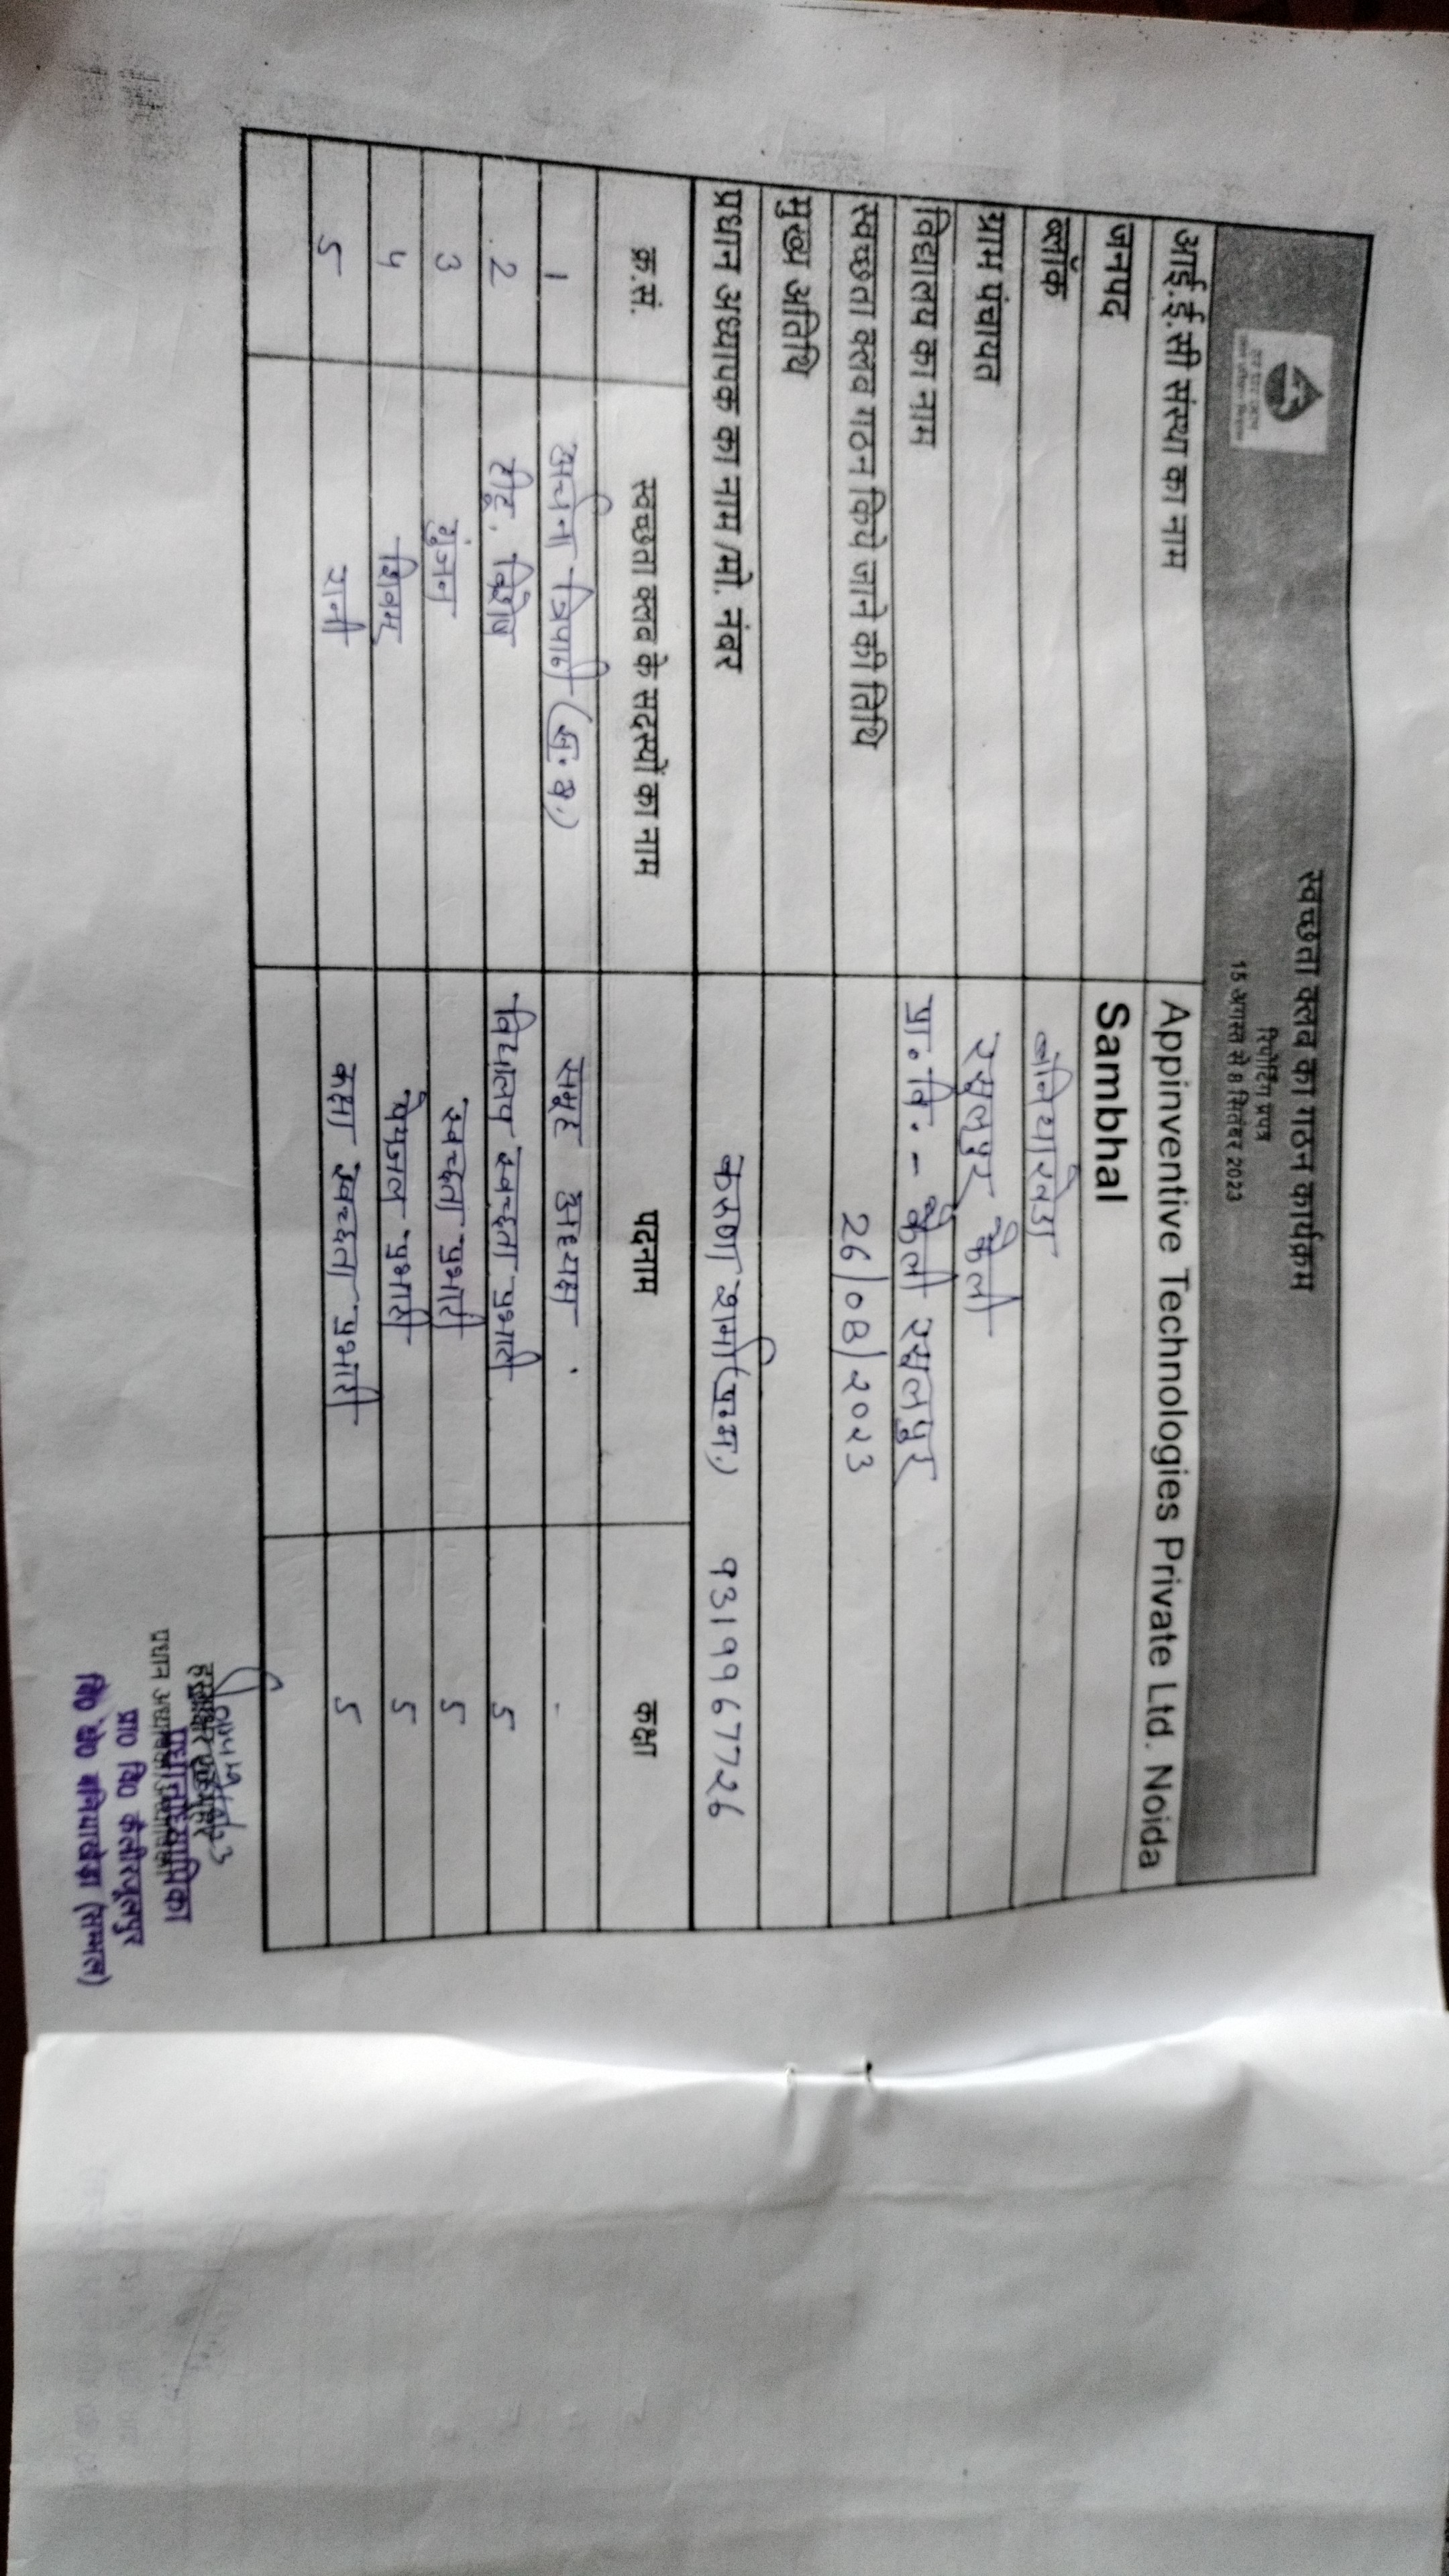 स्वच्छता क्लब का गठन कार्यक्रम
रिपोर्टिंग प्रपत्र
15 अगस्त से 8 सितंबर 2023
आई.ई.सी संस्था का नाम Appinventive Technologies Private Ltd. Noida
जनपद Sambhal
ब्लॉक बनियाखेडा
ग्राम पंचायत रसूलपुर कैली
विद्यालय का नाम प्रा. वि. - कैली रसूलपुर
स्वच्छता क्लब गठन किये जाने की तिथि 26/08/2023
मुख्य अतिथि
प्रधान अध्यापक का नाम /मो. नंबर करुणा शर्मा (प्र.अ.) 9319967726
क्र.सं. स्वच्छता क्लब के सदस्यों का नाम पदनाम कक्षा
1 अर्चना त्रिपाठी समूह अध्यक्ष
2 टीटू, विद्यालय स्वच्छता प्रभारी 5
3 गुंजन स्वच्छता प्रभारी 5
4 शिवम् पेयजल प्रभारी 5
5 रानी कक्षा स्वच्छता प्रभारी 5
प्रधान अध्यापक
प्रा० वि० कैलीरसूलपुर
वि० क्षे० बनियाखेडा (सम्भल)